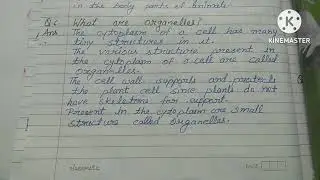 in the body parts of animals.
Q: What are organelles?
Ans The cytoplasm of a cell has many
tiny structures in it.
The various structure present in
the cytoplasm of a cell are called
organelles.
The cell wall supports and protects
the plant cell since plants do not
have skeletons for support.
Present in the cytoplasm are small
structure called organelles.
KINEMASTER